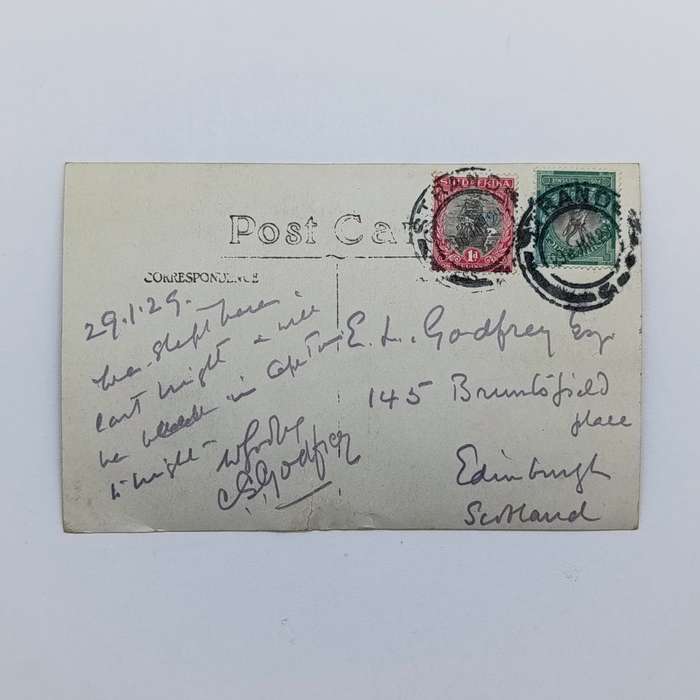 Post Ca
CORRESPONDENCE
29.1.29.
slept here
last night & will
be in Cape Town
to night -
C S Godfrey
E. L. Godfrey Esq.
145 Bruntsfield
place
Edinburgh
Scotland
STRAND
1d
STRAND